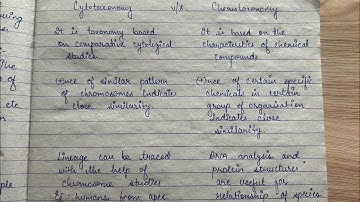 Cytotaxonomy v/s Chemotaxonomy
It is taxonomy based
on comparative cytological
studies.
It is based on the
characteristics of chemical
compounds
(+)nce of similar pattern
of chromosomes indicate
close similarity
(+)nce of certain specific
chemicals in certain
group of organisation
indicates close
similarity
Lineage can be traced
with the help of
chromosome studies
Ex humans from apes
DNA analysis and
protein structures
are useful for
relationship of species
uring
The
of
etc
ple